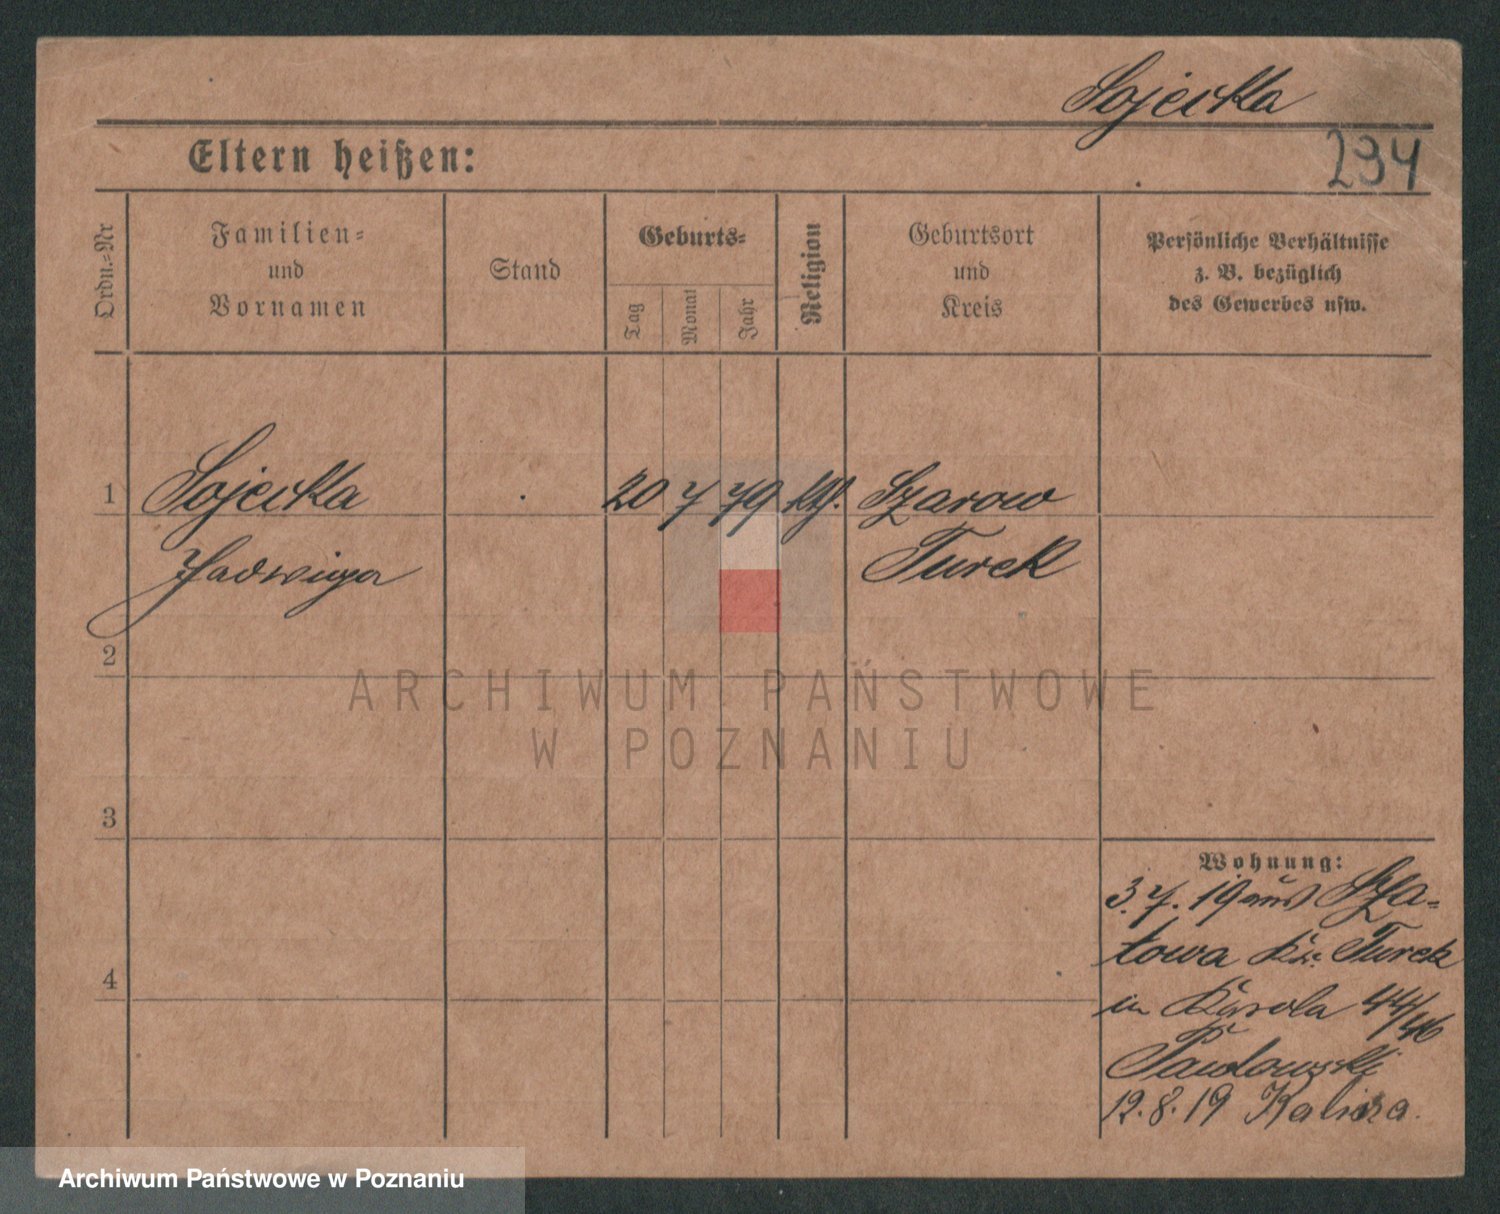 Sojecka
Eltern heißen:
294
Ordn.=Nr
Familien=
und
Vornamen
Stand
Geburts=
Tag
Monat
Jahr
Religion
Geburtsort
und
Kreis
Persönliche Verhältnisse
z. B. bezüglich
des Gewerbes usw.
1
Sojecka
20 7 79
Szarow
Jadwiga
Turek
2
ARCHIWUM PAŃSTWOWE
W POZNANIU
3
Wohnung:
3.7.19 aus
towa Kr. Turek
4
in Karola 44/46
Pawlowski
12.8.19 Kalisza.
Archiwum Państwowe w Poznaniu